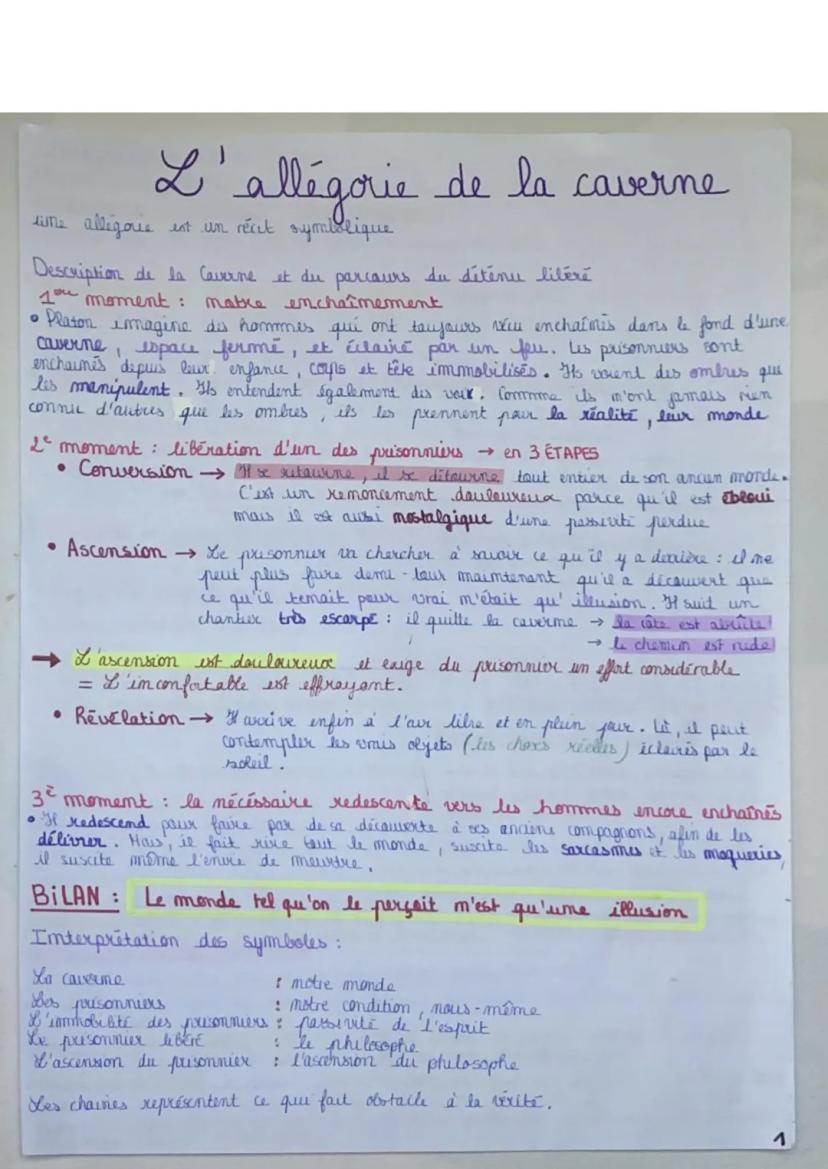 L'allégorie de la caverne
une allégorie est un récit symbolique
Description de la Caverne et du parcours du détenu libéré
1er moment : notre enchaînement
• Platon imagine des hommes qui ont toujours vécu enchaînés dans le fond d'une
caverne, espace fermé, et éclairé par un feu. Les prisonniers sont
enchaînés depuis leur enfance, corps et tête immobilisés. Ils voient des ombres qui
les manipulent. Ils entendent également des voix. Comme ils n'ont jamais rien
connu d'autres que les ombres, ils les prennent pour la réalité, leur monde
2e moment : libération d'un des prisonniers → en 3 ÉTAPES
• Conversion → Il se retourne, il se détourne tout entier de son ancien monde.
C'est un renoncement douloureux parce qu'il est ébloui
mais il est aussi nostalgique d'une passivité perdue
• Ascension → Le prisonnier va chercher à savoir ce qu'il y a derrière : il ne
peut plus faire demi-tour maintenant qu'il a découvert que
ce qu'il tenait pour vrai n'était qu'illusion. Il suit un
chantier très escarpé : il quitte la caverne → la côte est abrûte!
→ le chemin est rude!
→ L'ascension est douloureux et exige du prisonnier un effort considérable
= L'inconfortable est effrayant.
• Révélation → Il arrive enfin à l'air libre et en plein jour. Là, il peut
contempler les vrais objets (les choses réelles) éclairés par le
soleil.
3è moment : la nécessaire redescente vers les hommes encore enchaînés
• Il redescend pour faire par de sa découverte à ses anciens compagnons, afin de les
délivrer. Mais, il fait rire tout le monde, suscite les sarcasmes et les moqueries,
il suscite même l'envie de meurtre.
BiLAN : Le monde tel qu'on le perçait n'est qu'une illusion
Interprétation des symboles :
La caverne : notre monde
Les prisonniers : notre condition, nous-même
L'immobilité des prisonniers : passivité de l'esprit
Le prisonnier libéré : le philosophe
L'ascension du prisonnier : l'ascension du philosophe
Les chaînes représentent ce qui fait obstacle à la vérité.
1